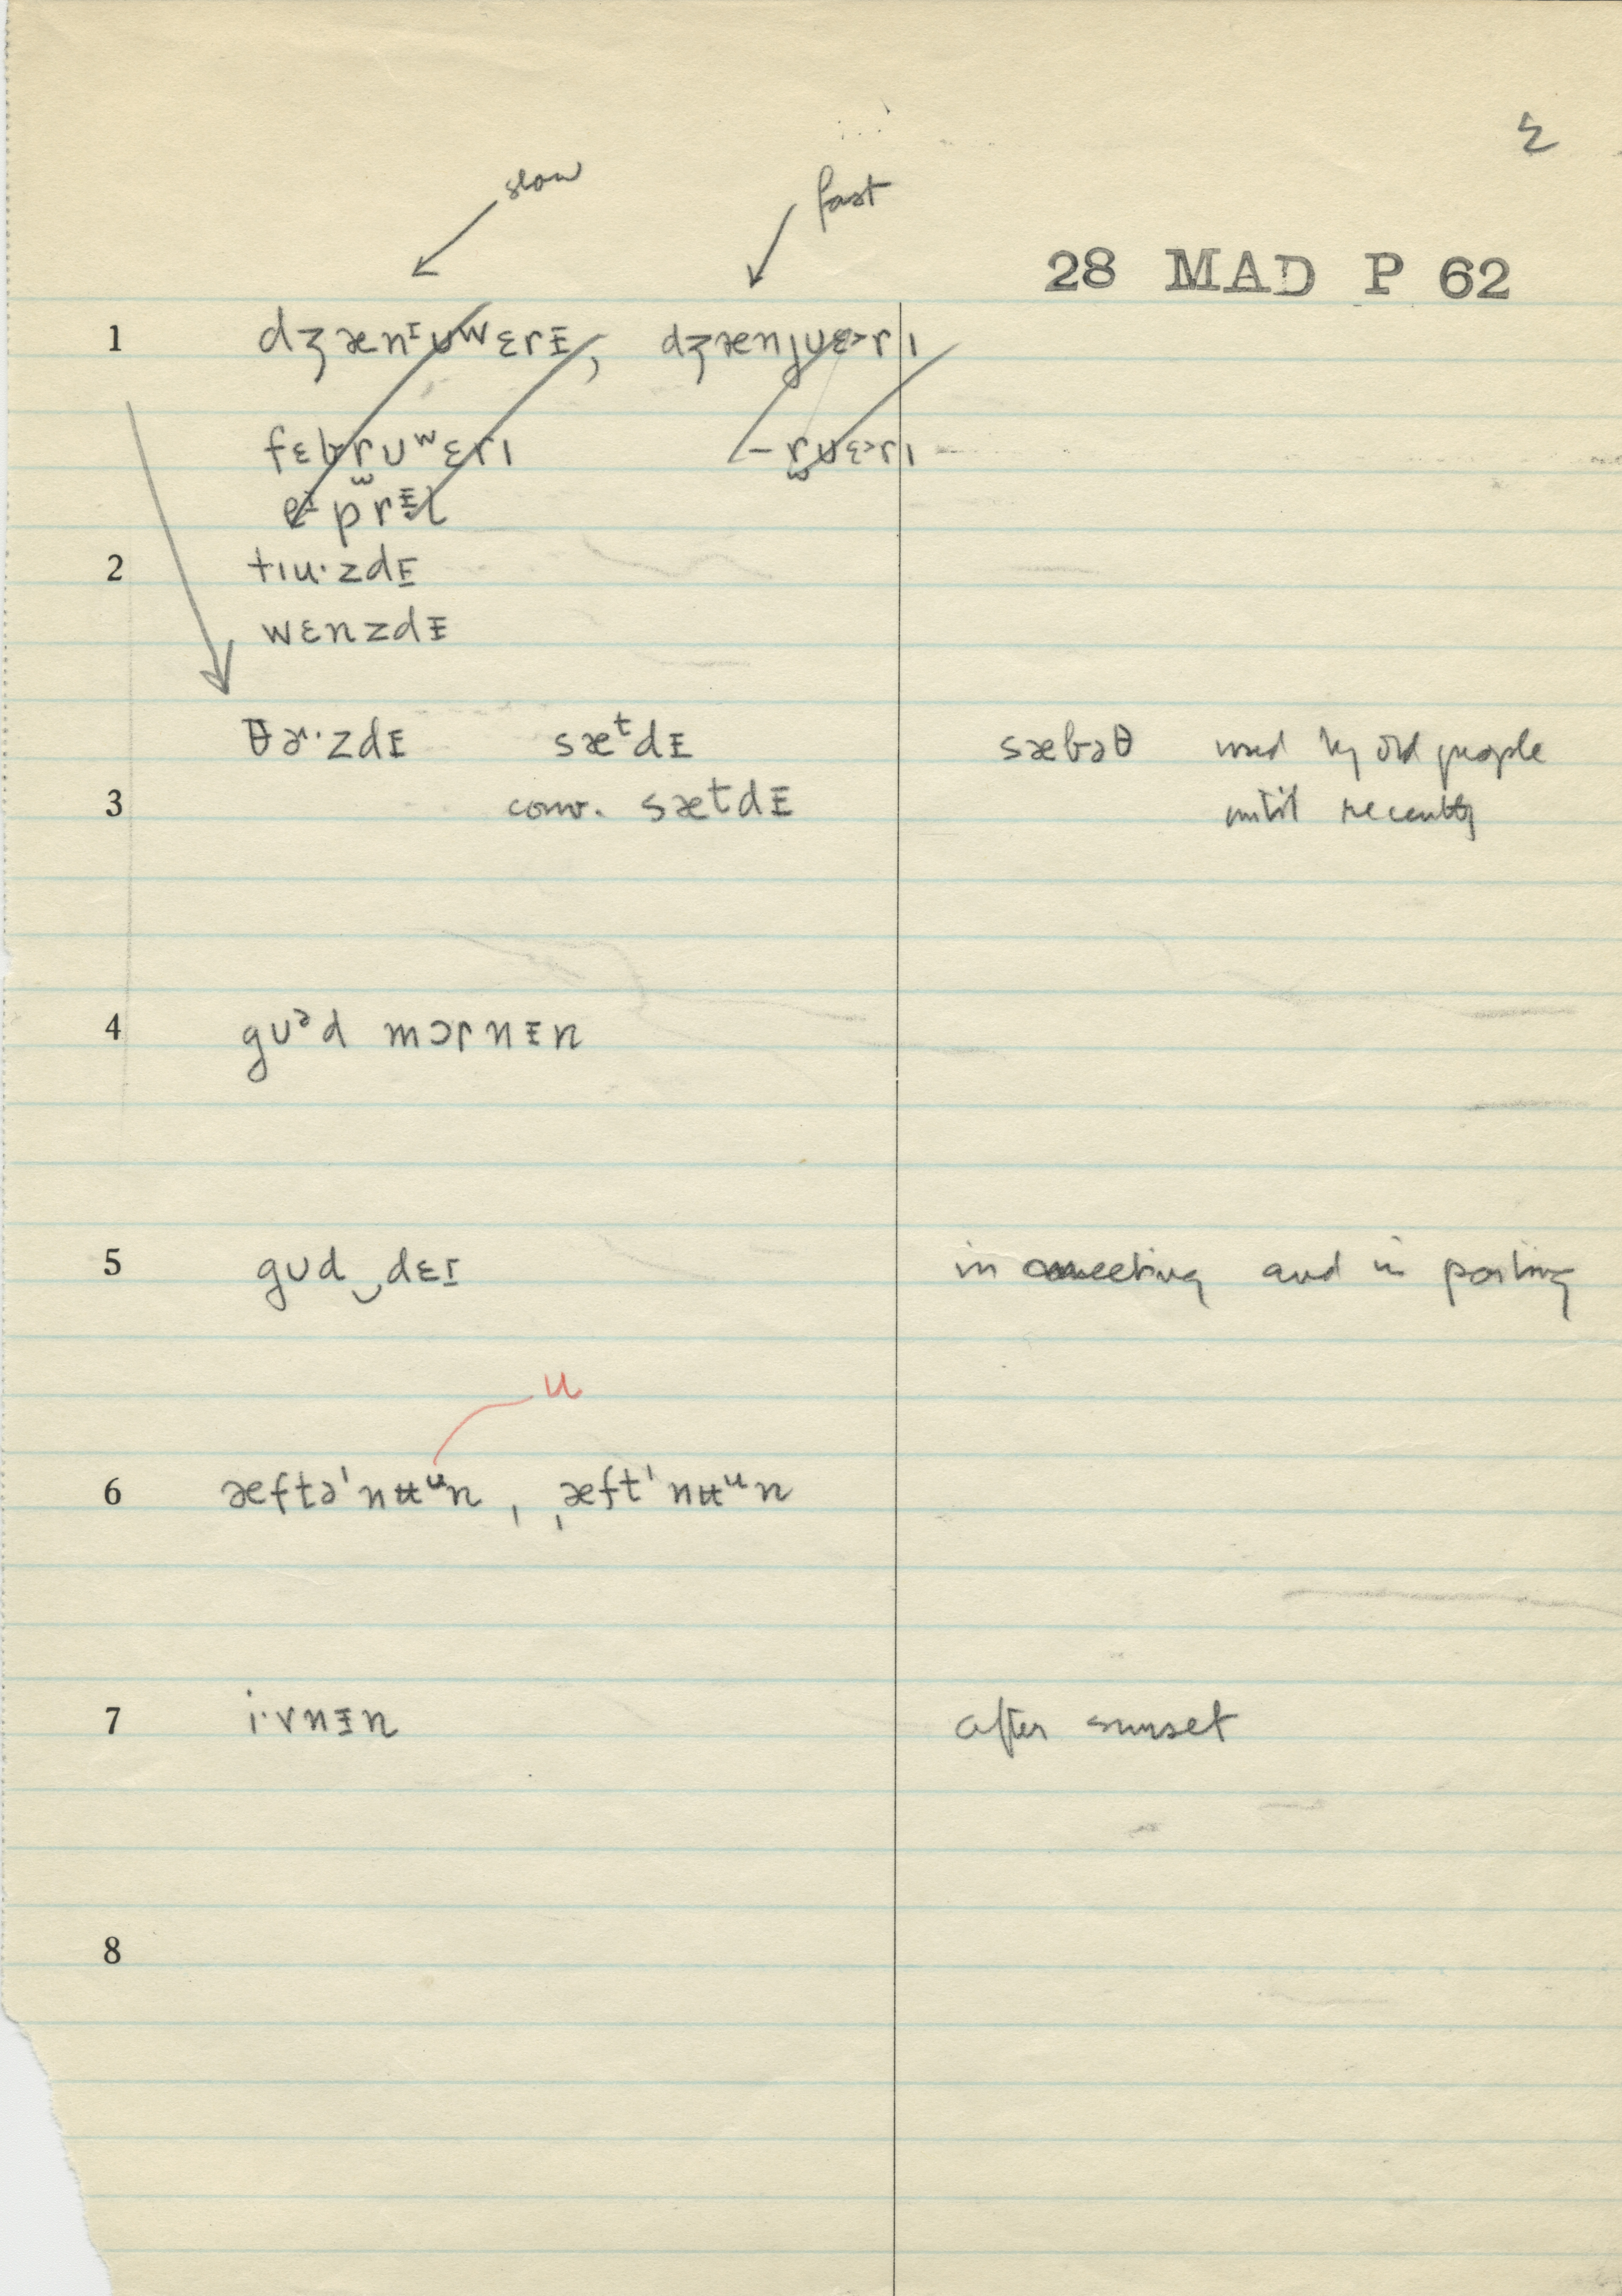 slow fast
28 MAD P 62
1 dʒænᶦᴜʷɛrɪ̵, dʒænȷᴜɛ˃rı
fɛbr̫ᴜʷɛrı –r̫ᴜɛ˃rı
eᶦprᶧl
2 tıu·zdɪ
wɛnzdɪ̵
θɚ·zdɪ̵ sæᵗdɪ̵ sæbəθ used by old people
3 conv. sætdɪ̵ until recently
4 gᴜᵊd mɔrnɪ̵n
5 gᴜd‿dɛɪ in meeting and in parting
u
6 æftə'nʉᵘn, ˌæft'nʉᵘn
7 i·vnɪ̵n after sunset
8